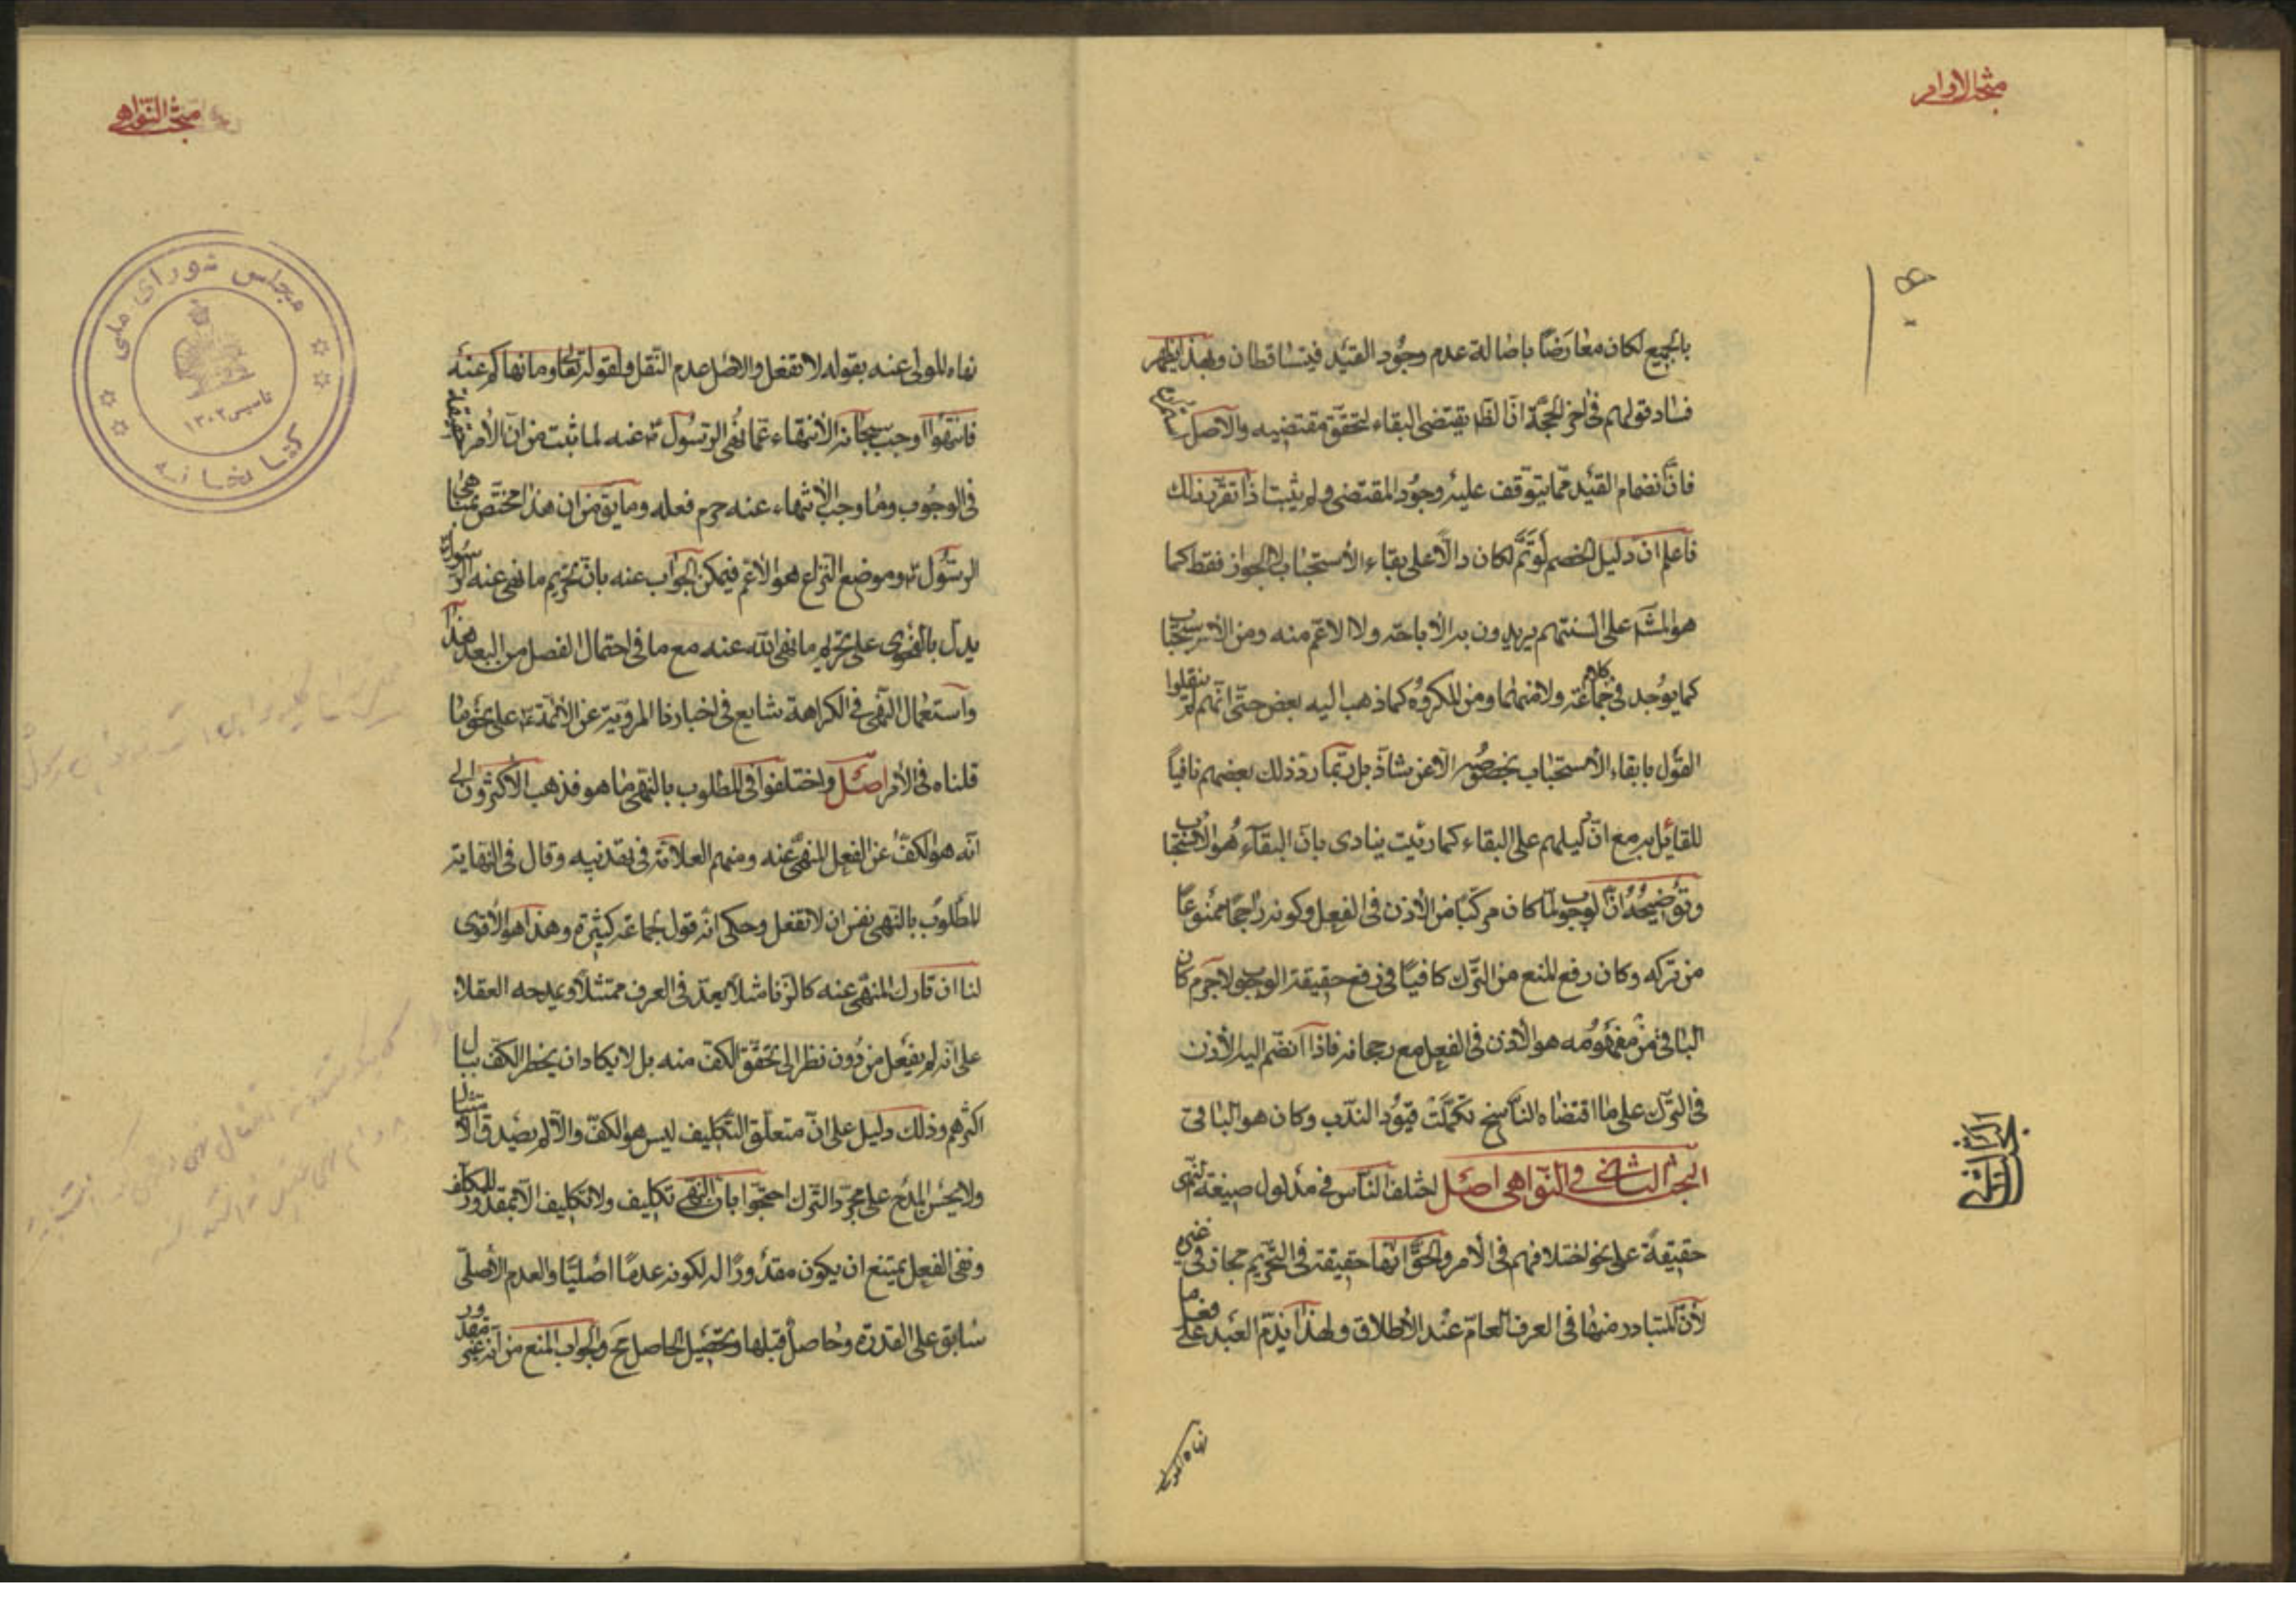 مبحث الاوامر
بالجميع لكان معارضًا باصالة عدم وجود القيد فيتساقطان وبهذا يظهر
فساد قولهم فى اخر الحجة ان الظ يقتضى البقاء لتحقق مقتضيه والاصل استمراره
فان انضمام القيد مما يتوقف عليه وجود المقتضى ولم يثبت اذا تقرر ذلك
فاعلم ان دليل الخصم لو تم لكان دالا على بقاء الاستحباب لا الجواز فقط كما
هو المش على السنتهم يريدون به الاباحة ولا الاعم منه ومن الاستحباب
كما يوجد فى كلام جماعة ولا منهما ومن المكروه كما ذهب اليه بعض حتى انهم لم ينقلوا
القول بابقاء الاستحباب بخصوصه الا عن شاذ بل ربما رد ذلك بعضهم نافياً
للقائل به مع ان دليلهم على البقاء كما رئيت ينادى بان البقاء هو الاستحباب
وتوضيحه ان الوجوب لما كان مركبًا من الاذن فى الفعل وكونه راجحًا ممنوعًا
من تركه وكان رفع المنع من الترك كافيًا فى رفع حقيقة الوجوب لاجرم كان
الباقى من مفهومه هو الاذن فى الفعل مع رجحانه فاذا انضم اليه الاذن
فى الترك على ما اقتضاه الناسخ تكملت قيود الندب وكان هو الباقى
البحث الثانى فى النواهى اصل اختلف الناس فى مدلول صيغة النهى
حقيقةً على نحو اختلافهم فى الامر والحق انها حقيقة فى التحريم مجاز فى غيره
لان المتبادر منها فى العرف العام عند الاطلاق ولهذا يذم العبد على فعل ما
البحث الثانى
نهاه المولى
مبحث النواهى
نهاه المولى عنه بقوله لا تفعل والاصل عدم النقل ولقوله تعالى وما نهاكم عنه
فانتهوا اوجب سبحانه الانتهاء عما نهى الرسول ص عنه لما ثبت من ان الامر حقيقة
فى الوجوب وما وجب الانتهاء عنه حرم فعله وما يق من ان هذا مختص بمناهى
الرسول ص وموضع النزاع هو الاعم فيمكن الجواب عنه بان تحريم ما نهى عنه الرسول ص
يدل بالفحوى على تحريم ما نهى الله عنه مع ما فى احتمال الفصل من البعد هذا
واستعمال النهى فى الكراهة شايع فى اخبارنا المروية عن الائمة ع على نحو ما
قلناه فى الامر اصل واختلفوا فى المطلوب بالنهى ما هو فذهب الاكثرون الى
انه هو الكف عن الفعل المنهى عنه ومنهم العلامة فى تهذيبه وقال فى النهاية
المطلوب بالنهى نفس ان لا تفعل وحكى انه قول جماعة كثيرة وهذا هو الاقوى
لنا ان تارك المنهى عنه كالزنا مثلا يعد فى العرف ممتثلاً ويمدحه العقلاء
على انه لم يفعل من دون نظر الى تحقق الكف منه بل لا يكاد ان يخطر الكف ببال
اكثرهم وذلك دليل على ان متعلق التكليف ليس هو الكف والا لم يصدق الامتثال
ولا يحسن المدح على مجرد الترك احتجوا بان النهى تكليف ولا تكليف الا بمقدور للمكلف
ونفى الفعل يمتنع ان يكون مقدورًا له لكونه عدمًا اصليًا والعدم الاصلى
سابق على القدرة وحاصل قبلها وتحصيل الحاصل مح والجواب المنع من انه غير مقدور
مجلس شوراى ملى
كتابخانه
تاسيس ١٣٠٢